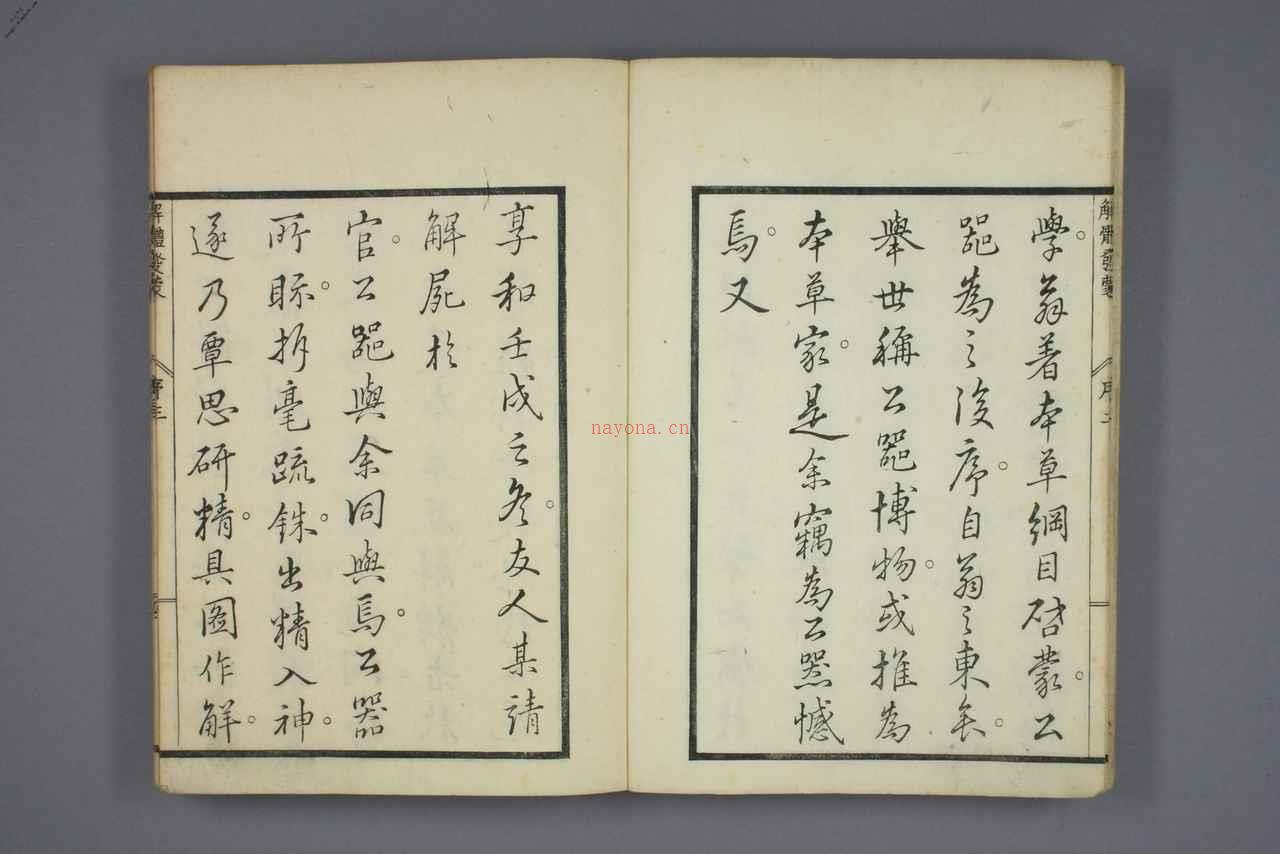 解體發蒙 序二
學。翁著本草綱目啓蒙。公
器為之後序。自翁之東矣。
舉世稱公器博物。或推為
本草家。是余竊為公器憾
焉。又
享和壬戌之冬。友人某請
解屍於
官。公器與余同與焉。公器
所眎。析毫疏銖。出精入神。
遂乃覃思研精。具圖作解。
解體發蒙 序三
nayona.cn